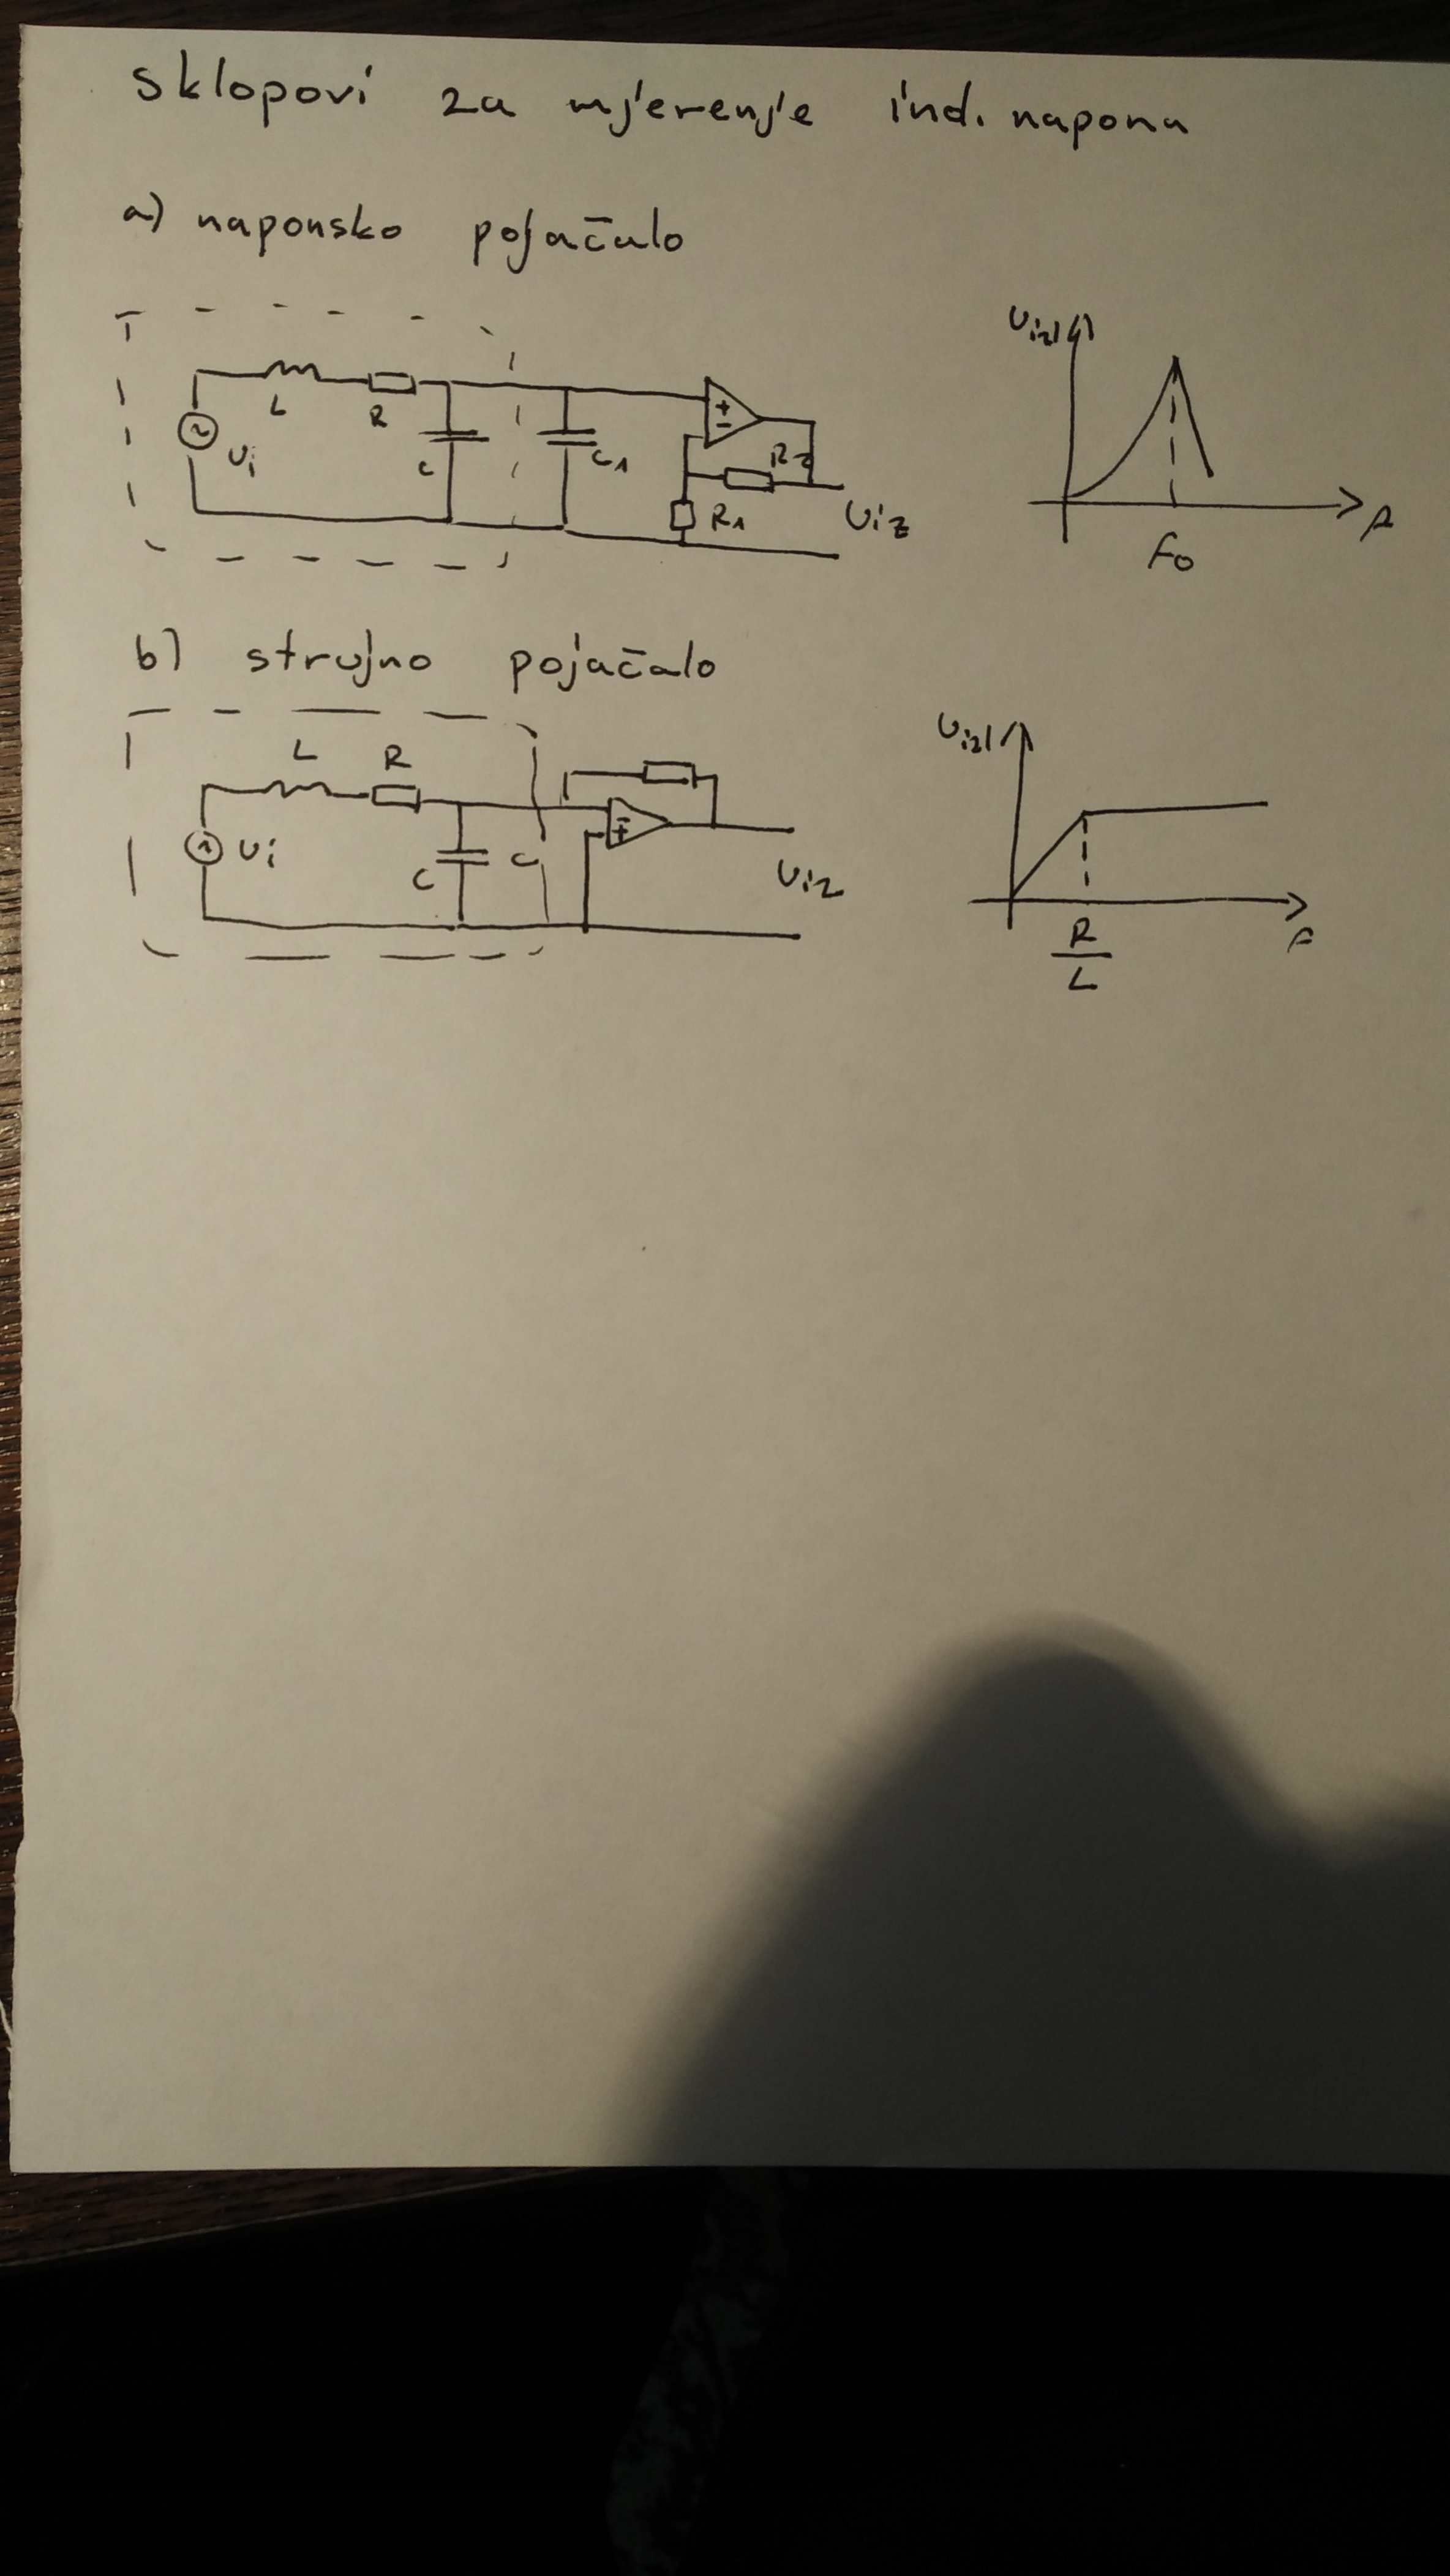 sklopovi za mjerenje ind. napona
a) naponsko pojačalo
L R C C1 + - R2 R1 Ui Uiz
Uizl f f0
b) strujno pojačalo
L R Ui C C - + Uiz
Uizl f R/L